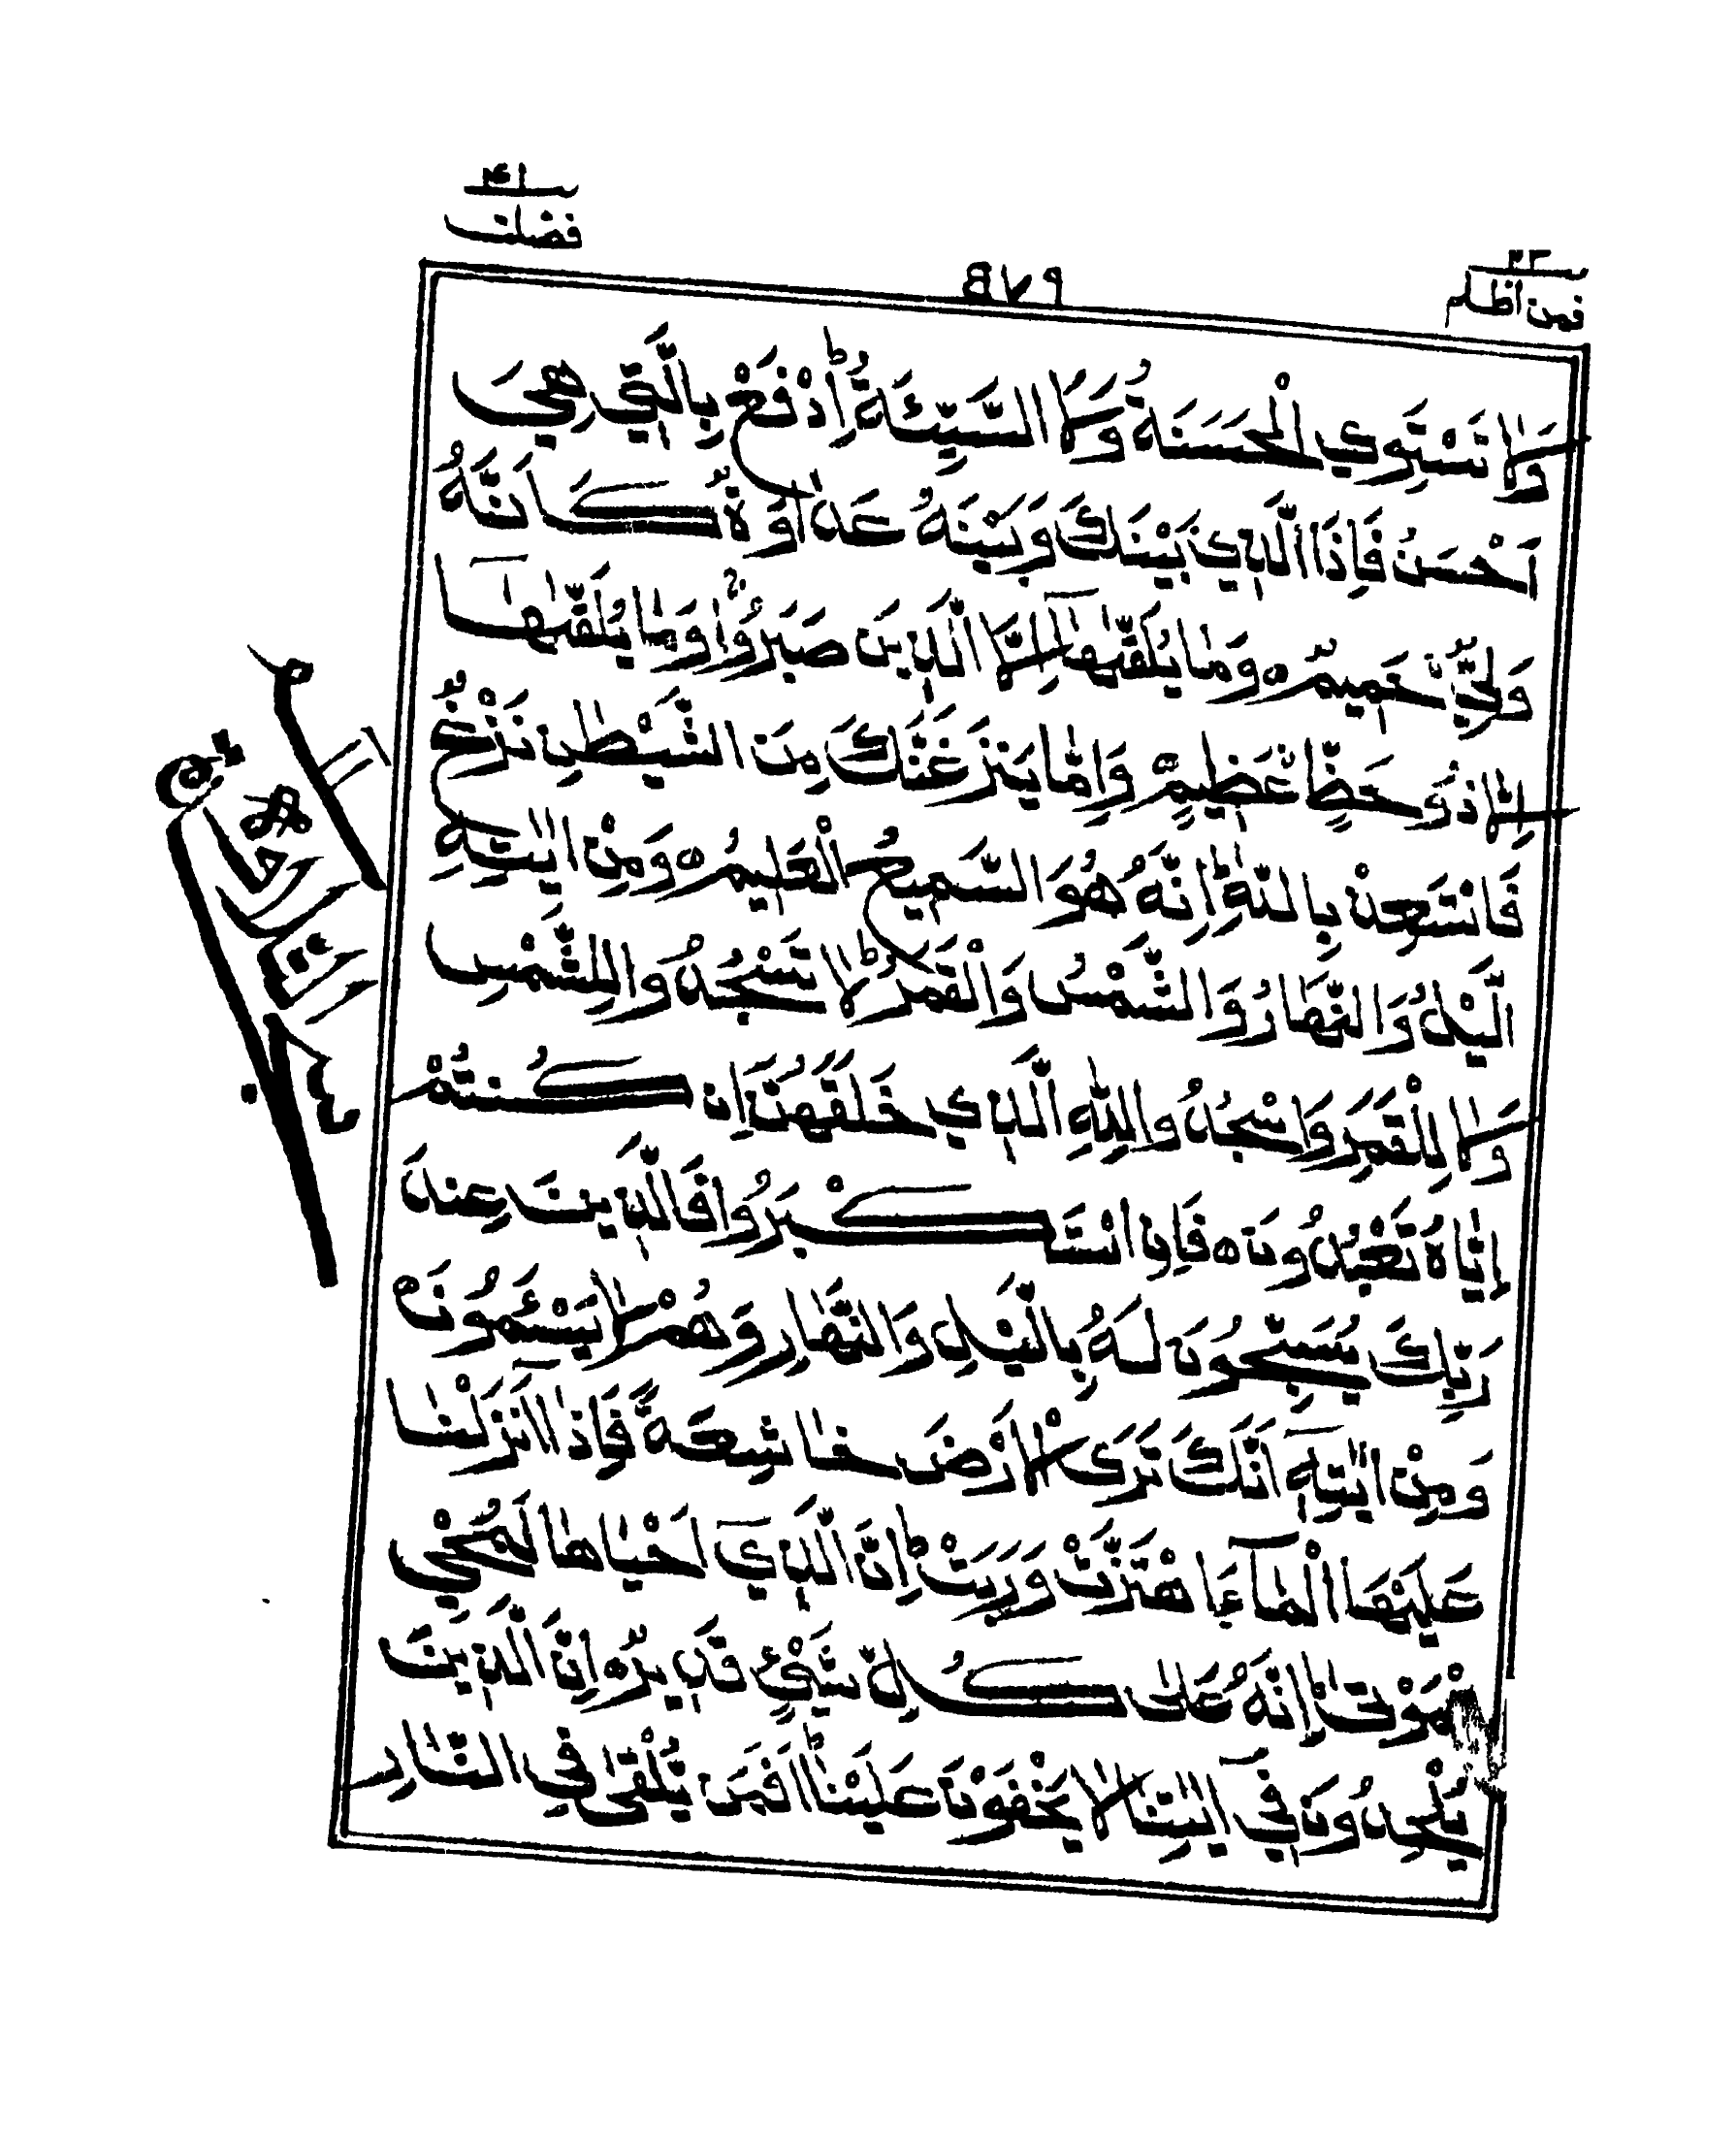 ٤١
فصلت
فمن اظلم
وَلَا تَسْتَوِي الْحَسَنَةُ وَلَا السَّيِّئَةُ ۭ اِدْفَعْ بِالَّتِي هِيَ
اَحْسَنُ فَاِذَا الَّذِي بَيْنَكَ وَبَيْنَهٗ عَدَاوَةٌ كَاَنَّهٗ
وَلِيٌّ حَمِيمٌ ه وَمَا يُلَقّٰىهَآ اِلَّا الَّذِينَ صَبَرُوْا ۚ وَمَا يُلَقّٰىهَآ
اِلَّا ذُو حَظٍّ عَظِيمٍ وَاِمَّا يَنزَغَنَّكَ مِنَ الشَّيْطٰنِ نَزْغٌ
فَاسْتَعِذْ بِاللّٰهِ ۭ اِنَّهٗ هُوَ السَّمِيعُ الْعَلِيمُ ه وَمِنْ اٰيٰتِهِ
الَّيْلُ وَالنَّهَارُ وَالشَّمْسُ وَالْقَمَرُ ۭ لَا تَسْجُدُوا لِلشَّمْسِ
وَلَا لِلْقَمَرِ وَاسْجُدُوا لِلّٰهِ الَّذِي خَلَقَهُنَّ اِن كُنتُمْ
اِيَّاهُ تَعْبُدُونَ ه فَاِنِ اسْتَكْبَرُوا فَالَّذِينَ عِندَ
رَبِّكَ يُسَبِّحُونَ لَهٗ بِالَّيْلِ وَالنَّهَارِ وَهُمْ لَا يَسْـَٔمُونَ ه
وَمِنْ اٰيٰتِهٖٓ اَنَّكَ تَرَى الْاَرْضَ خَاشِعَةً فَاِذَآ اَنزَلْنَا
عَلَيْهَا الْمَآءَ اهْتَزَّتْ وَرَبَتْ ۭ اِنَّ الَّذِيٓ اَحْيَاهَا لَمُحْيِ
الْمَوْتٰى ۭ اِنَّهٗ عَلٰى كُلِّ شَيْءٍ قَدِيرٌ ه اِنَّ الَّذِينَ
يُلْحِدُونَ فِيٓ اٰيٰتِنَا لَا يَخْفَوْنَ عَلَيْنَا ۭ اَفَمَن يُّلْقٰى فِي النَّارِ